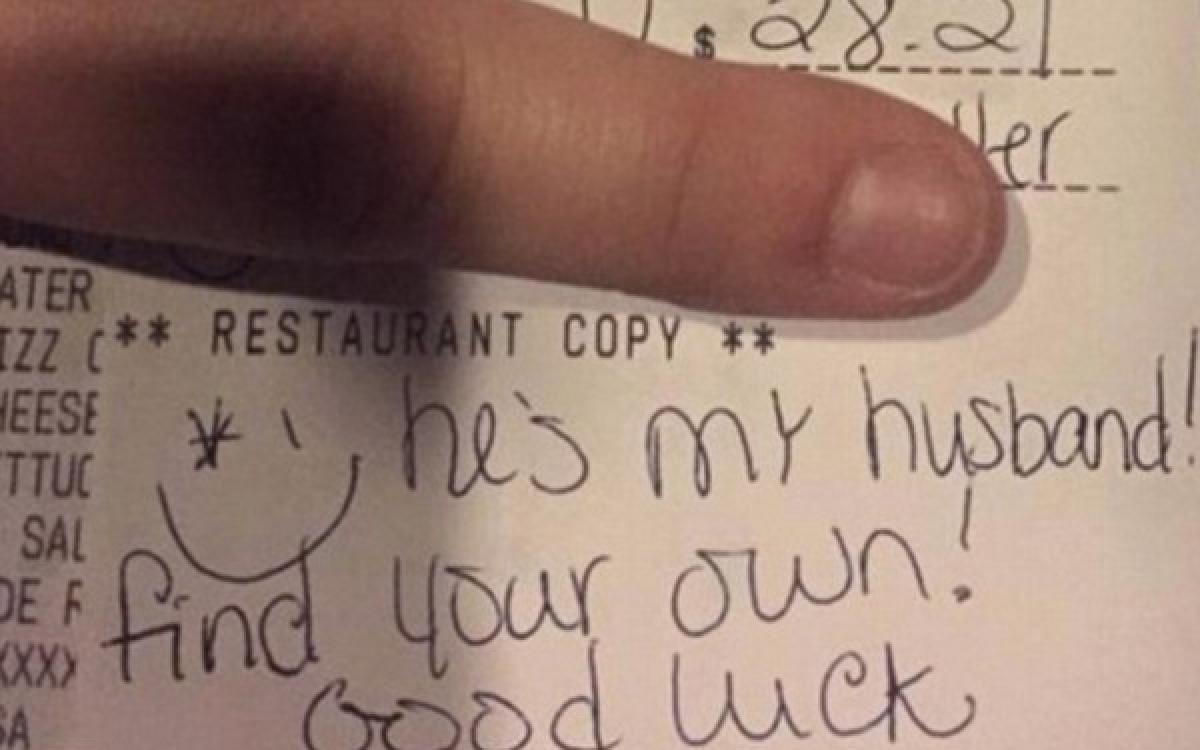 $ 28.21
ATER
IZZ
** RESTAURANT COPY **
HEESE
he's my husband!
TTUC
SAL
find your own!
DE F
XXX
Good Luck
SA